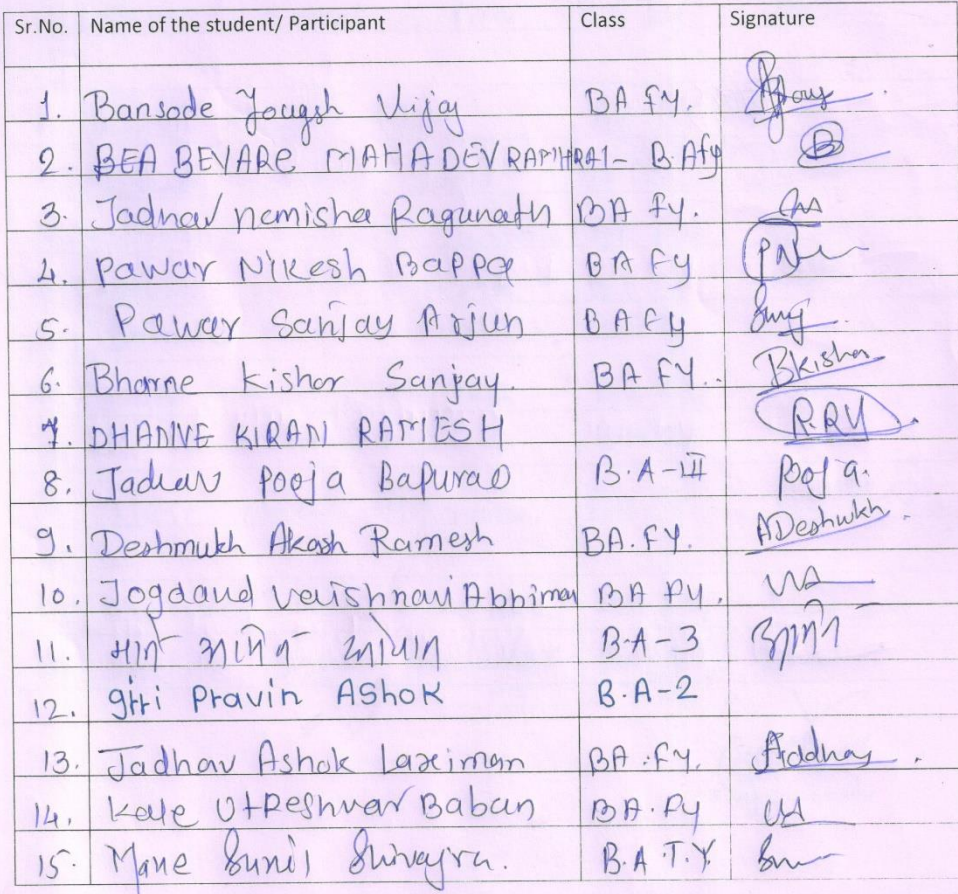 Sr.No. Name of the student/ Participant Class Signature
1. Bansode Yougsh Vijay BA FY.
2. BEA BEVARE MAHADEV RAMHRAI- B.Afy B
3. Jadhav nemisha Ragunath BA FY.
4. Pawar Nikesh Bappa BA FY PN
5. Pawar Sanjay Arjun BA FY
6. Bharne Kishor Sanjay. BA FY. Bkishor
7. DHANVE KIRAN RAMESH
8. Jadhav Pooja Bapurao B.A-III Pooja.
9. Deshmukh Akash Ramesh BA.FY. ADeshmukh.
10. Jogdand Vaishnavi Abhiman BA FY.
11. B-A-3
12. giri Pravin AShok B.A-2
13. Jadhav Ashok Laximan BA.FY.
14. Kale Utreshvar Baban BA.FY
15. Mane Sunil B.A.T.Y